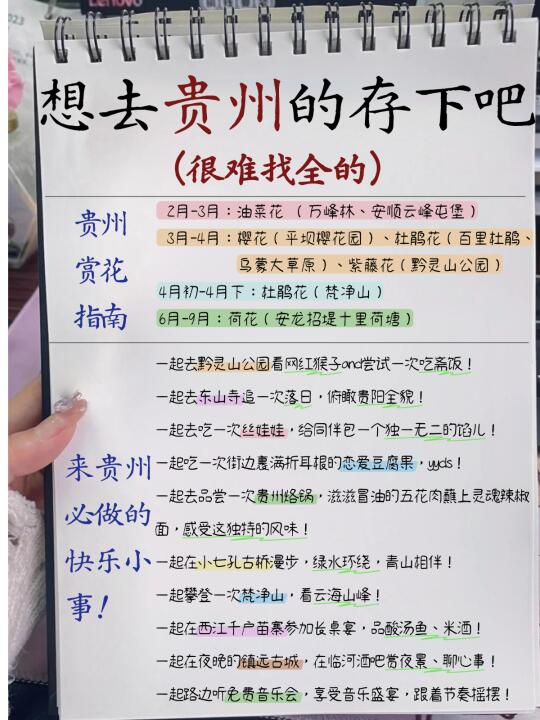 2023
Lenovo
想去贵州的存下吧
(很难找全的)
贵州
赏花
指南
2月-3月：油菜花（万峰林、安顺云峰屯堡）
3月-4月：樱花（平坝樱花园）、杜鹃花（百里杜鹃、
乌蒙大草原）、紫藤花（黔灵山公园）
4月初-4月下：杜鹃花（梵净山）
6月-9月：荷花（安龙招堤十里荷塘）
来贵州
必做的
快乐小
事！
一起去黔灵山公园看网红猴子and尝试一次吃斋饭！
一起去东山寺追一次落日，俯瞰贵阳全貌！
一起去吃一次丝娃娃，给同伴包一个独一无二的馅儿！
一起吃一次街边裹满折耳根的恋爱豆腐果，yyds！
一起去品尝一次贵州烙锅，滋滋冒油的五花肉蘸上灵魂辣椒
面，感受这独特的风味！
一起在小七孔古桥漫步，绿水环绕，青山相伴！
一起攀登一次梵净山，看云海山峰！
一起在西江千户苗寨参加长桌宴，品酸汤鱼、米酒！
一起在夜晚的镇远古城，在临河酒吧赏夜景、聊心事！
一起路边听免费音乐会，享受音乐盛宴，跟着节奏摇摆！